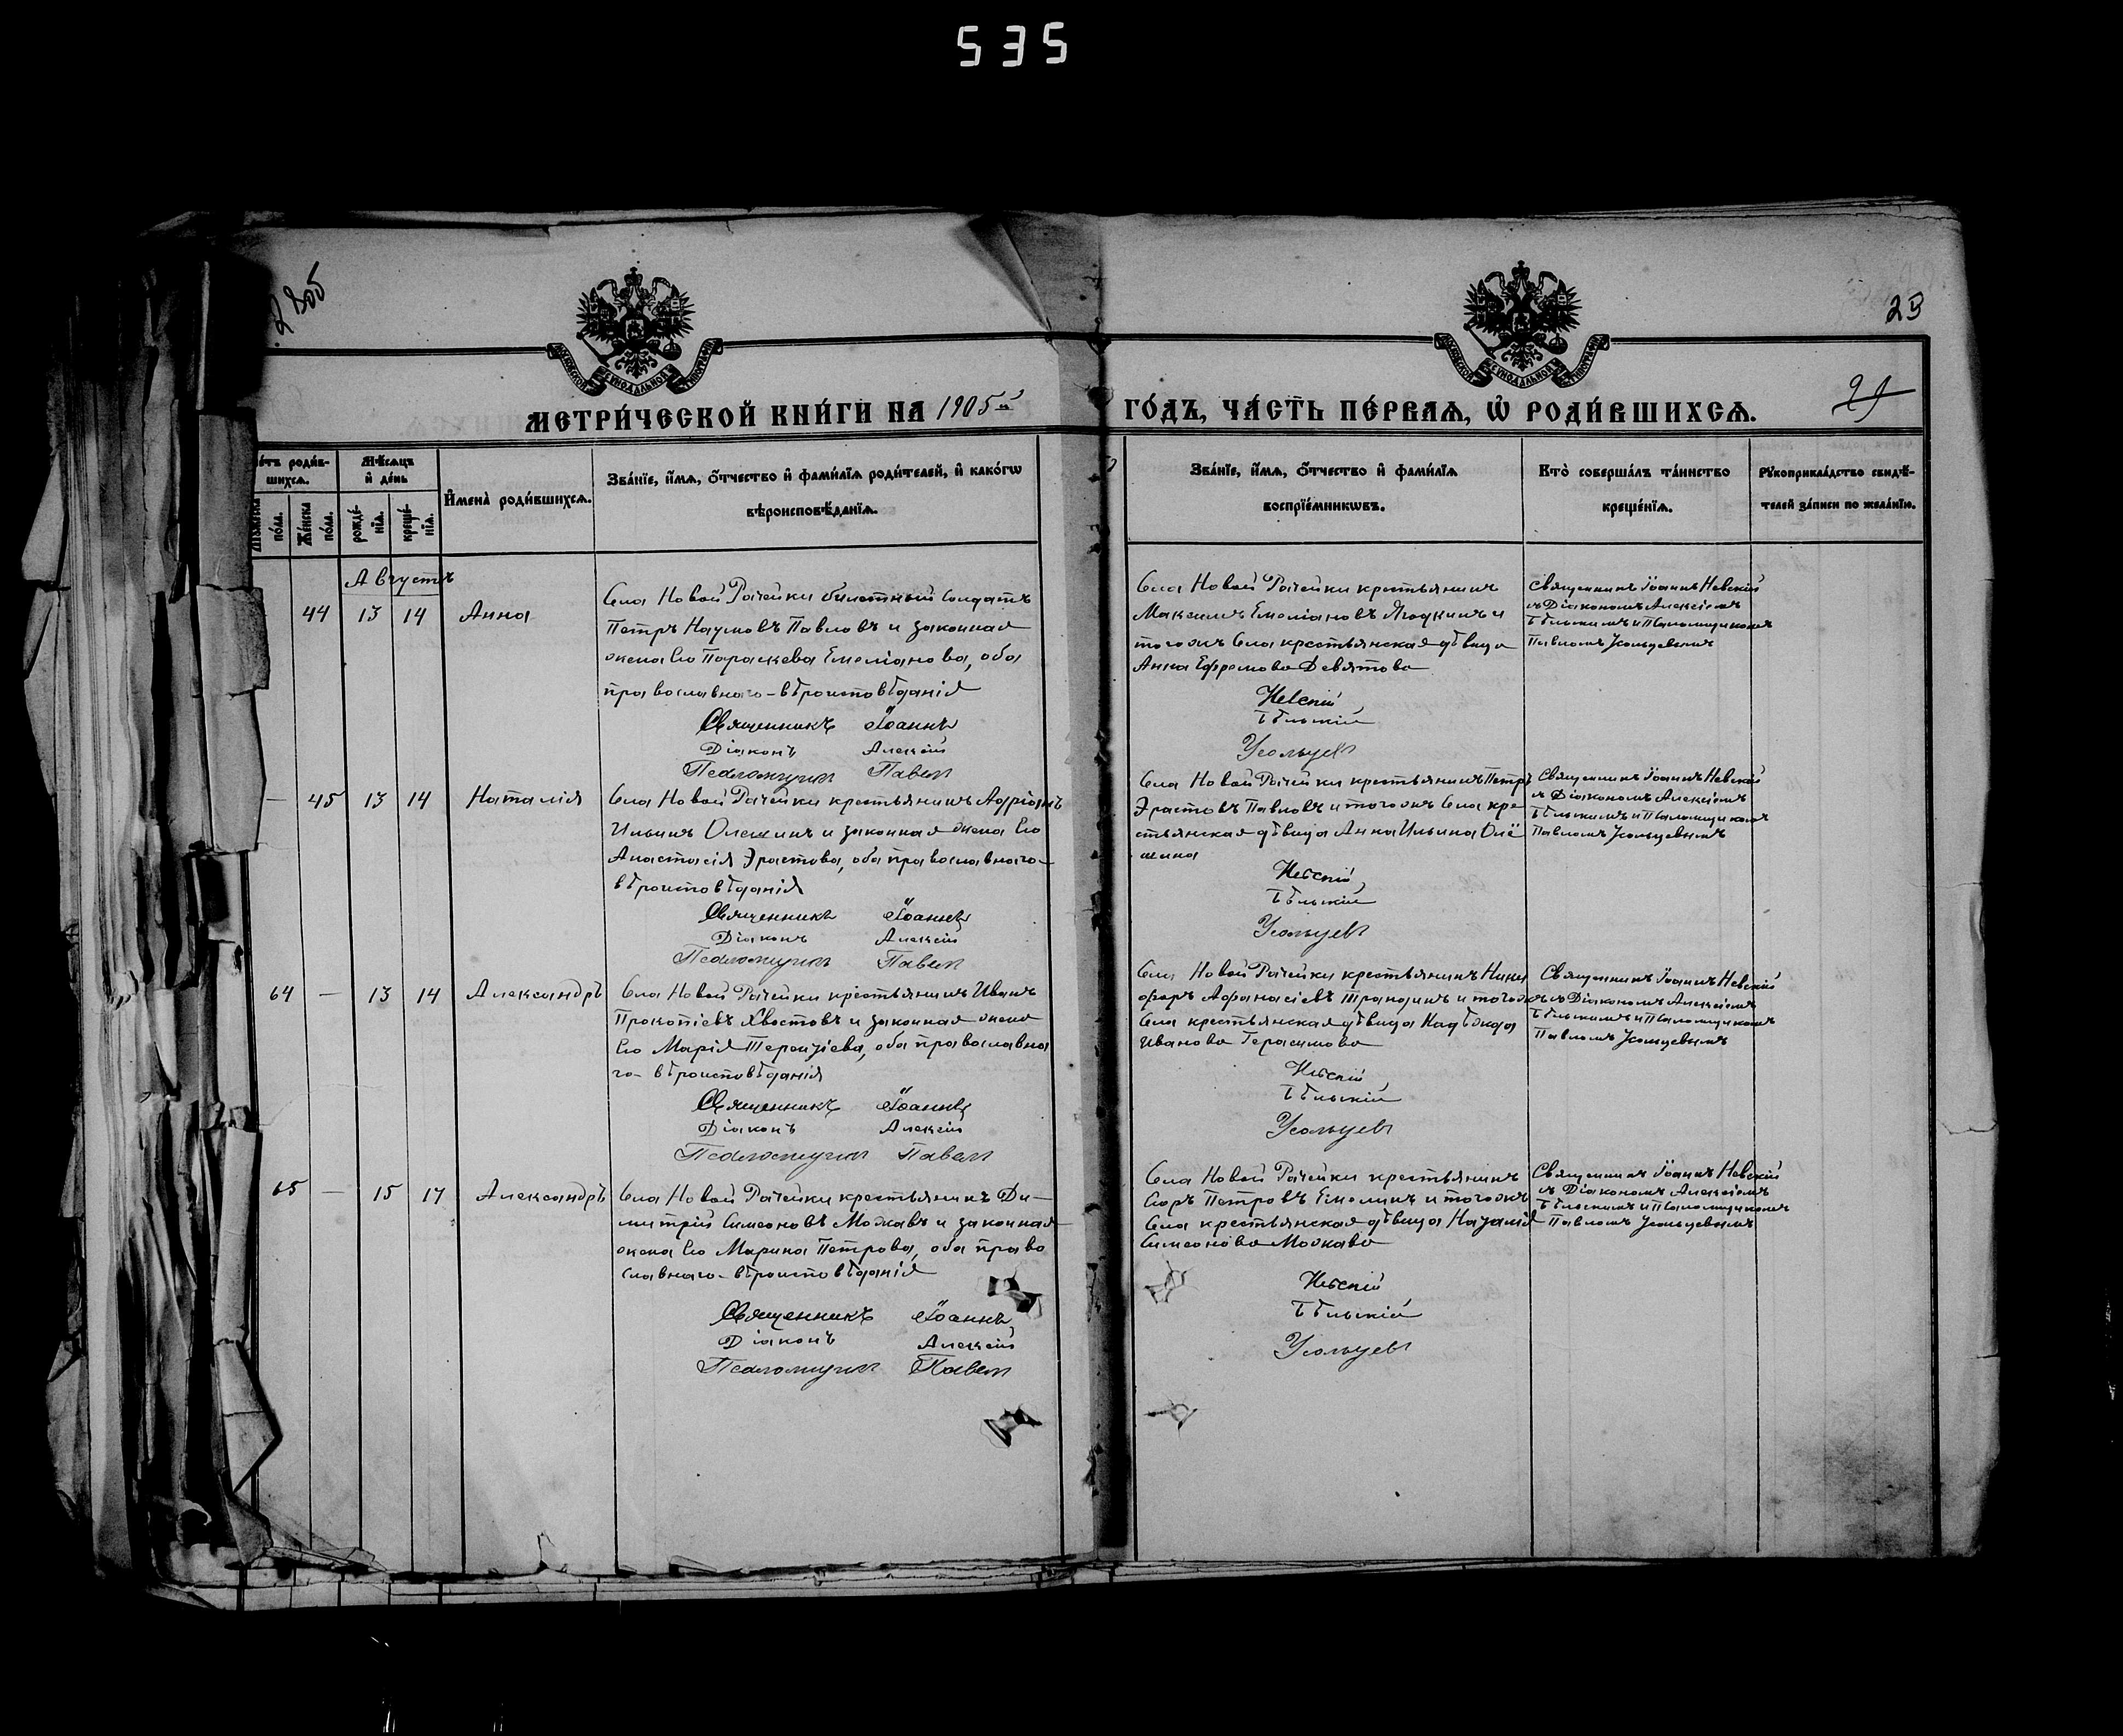 535
23
МЕТРИ́ЧЕСКОЙ КНИ́ГИ НА 1905й
ГО́ДЪ, ЧА́СТЬ ПЕ́РВАѦ, Ѡ҆ РОДИ́ВШИХСѦ.
29
роди́в-
шихсѧ.
Мѣ́сѧцъ
и҆ де́нь
И҆мена̀ роди́вшихсѧ.
Зва́нїе, и҆́мѧ, ѻ҆́тчество и҆ фами́лїѧ роди́телей, и҆ како́гѡ
вѣроисповѣ́данїѧ.
Мꙋжеска
по́ла.
Же́нска
по́ла.
рожде́-
нїѧ.
креще́-
нїѧ.
Зва́нїе, и҆́мѧ, ѻ҆́тчество и҆ фами́лїѧ
воспрїе́мникѡвъ.
Кто̀ соверша́лъ та́инство
креще́нїѧ.
Рꙋкоприкла́дство свидѣ́-
телей за́писи по жела́нїю.
Августъ
44 13 14 Анна
Села Новой Рачейки билетный солдатъ
Петръ Наумовъ Павловъ и законная
жена его Параскева Емеліанова, оба
православнаго-вѣроисповѣданія
Священникъ Іоаннъ
Діаконъ Алексій
Псаломщикъ Павелъ
Села Новой Рачейки крестьянинъ
Максимъ Емеліановъ Ягодкинъ и
тогожъ села крестьянская дѣвица
Анна Ефремова Девятова
Невскій
Бѣльскій
Усольцевъ
Священникъ Іоаннъ Невскій
съ Діакономъ Алексіемъ
Бѣльскимъ и Псаломщикомъ
Павломъ Усольцевымъ
— 45 13 14 Наталія
Села Новой Рачейки крестьянинъ Адріанъ
Ильинъ Олешинъ и законная жена его
Анастасія Эрастова, оба православнаго-
вѣроисповѣданія
Священникъ Іоаннъ
Діаконъ Алексій
Псаломщикъ Павелъ
Села Новой Рачейки крестьянинъ Петръ
Эрастовъ Павловъ и тогожъ села кре
стьянская дѣвица Анна Ильина Оле
шина
Невскій
Бѣльскій
Усольцевъ
Священникъ Іоаннъ Невскій
съ Діакономъ Алексіемъ
Бѣльскимъ и Псаломщикомъ
Павломъ Усольцевымъ
64 — 13 14 Александръ
Села Новой Рачейки крестьянинъ Иванъ
Прокопіевъ Хвостовъ и законная жена
его Марія Терентіева, оба православна
го-вѣроисповѣданія
Священникъ Іоаннъ
Діаконъ Алексій
Псаломщикъ Павелъ
Села Новой Рачейки крестьянинъ Ники
форъ Афанасіевъ и тогожъ
села крестьянская дѣвица Надѣжда
Иванова Герасимова
Невскій
Бѣльскій
Усольцевъ
Священникъ Іоаннъ Невскій
съ Діакономъ Алексіемъ
Бѣльскимъ и Псаломщикомъ
Павломъ Усольцевымъ
65 — 15 17 Александръ
Села Новой Рачейки крестьянинъ Ди-
митрій СимеоновъМожаевъ и законная
жена его Марина Петрова, оба право
славнаго-вѣроисповѣданія
Священникъ Іоаннъ
Діаконъ Алексій
Псаломщикъ Павелъ
Села Новой Рачейки крестьянинъ
Егоръ Петровъ Емелинъ и тогожъ
села крестьянская дѣвица Наталія
Симеонова Можаева
Невскій
Бѣльскій
Усольцевъ
Священникъ Іоаннъ Невскій
съ Діакономъ Алексіемъ
Бѣльскимъ и Псаломщикомъ
Павломъ Усольцевымъ